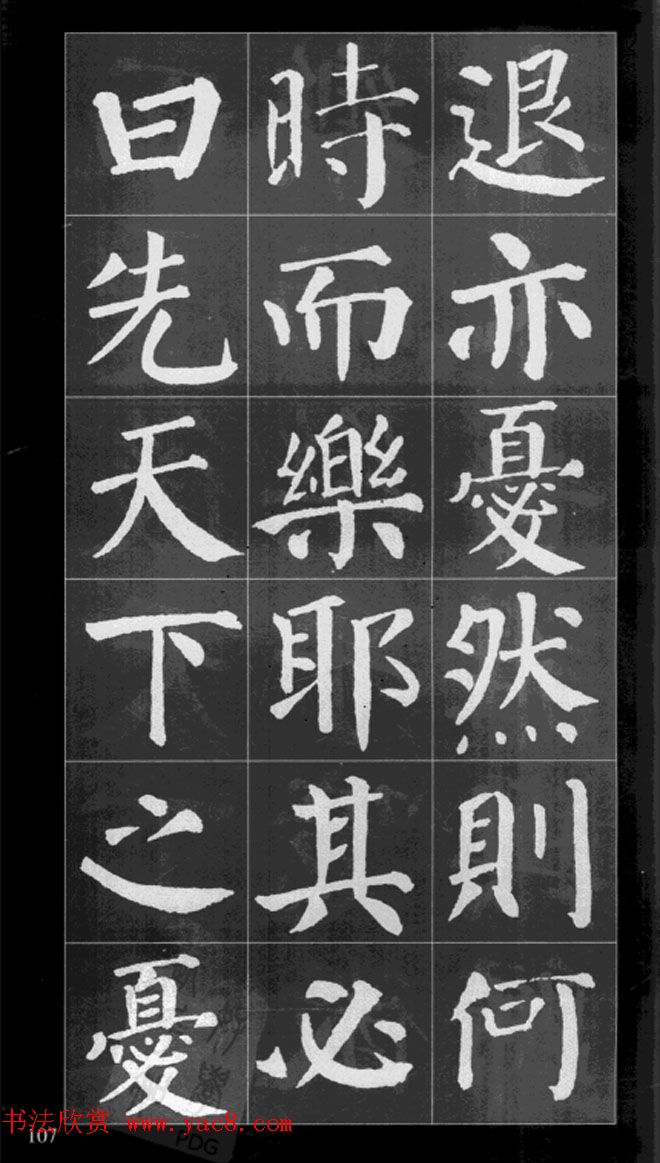 退亦憂然則何
時而樂耶其必
曰先天下之憂
书法欣赏 www.yac8.com
107
PDG